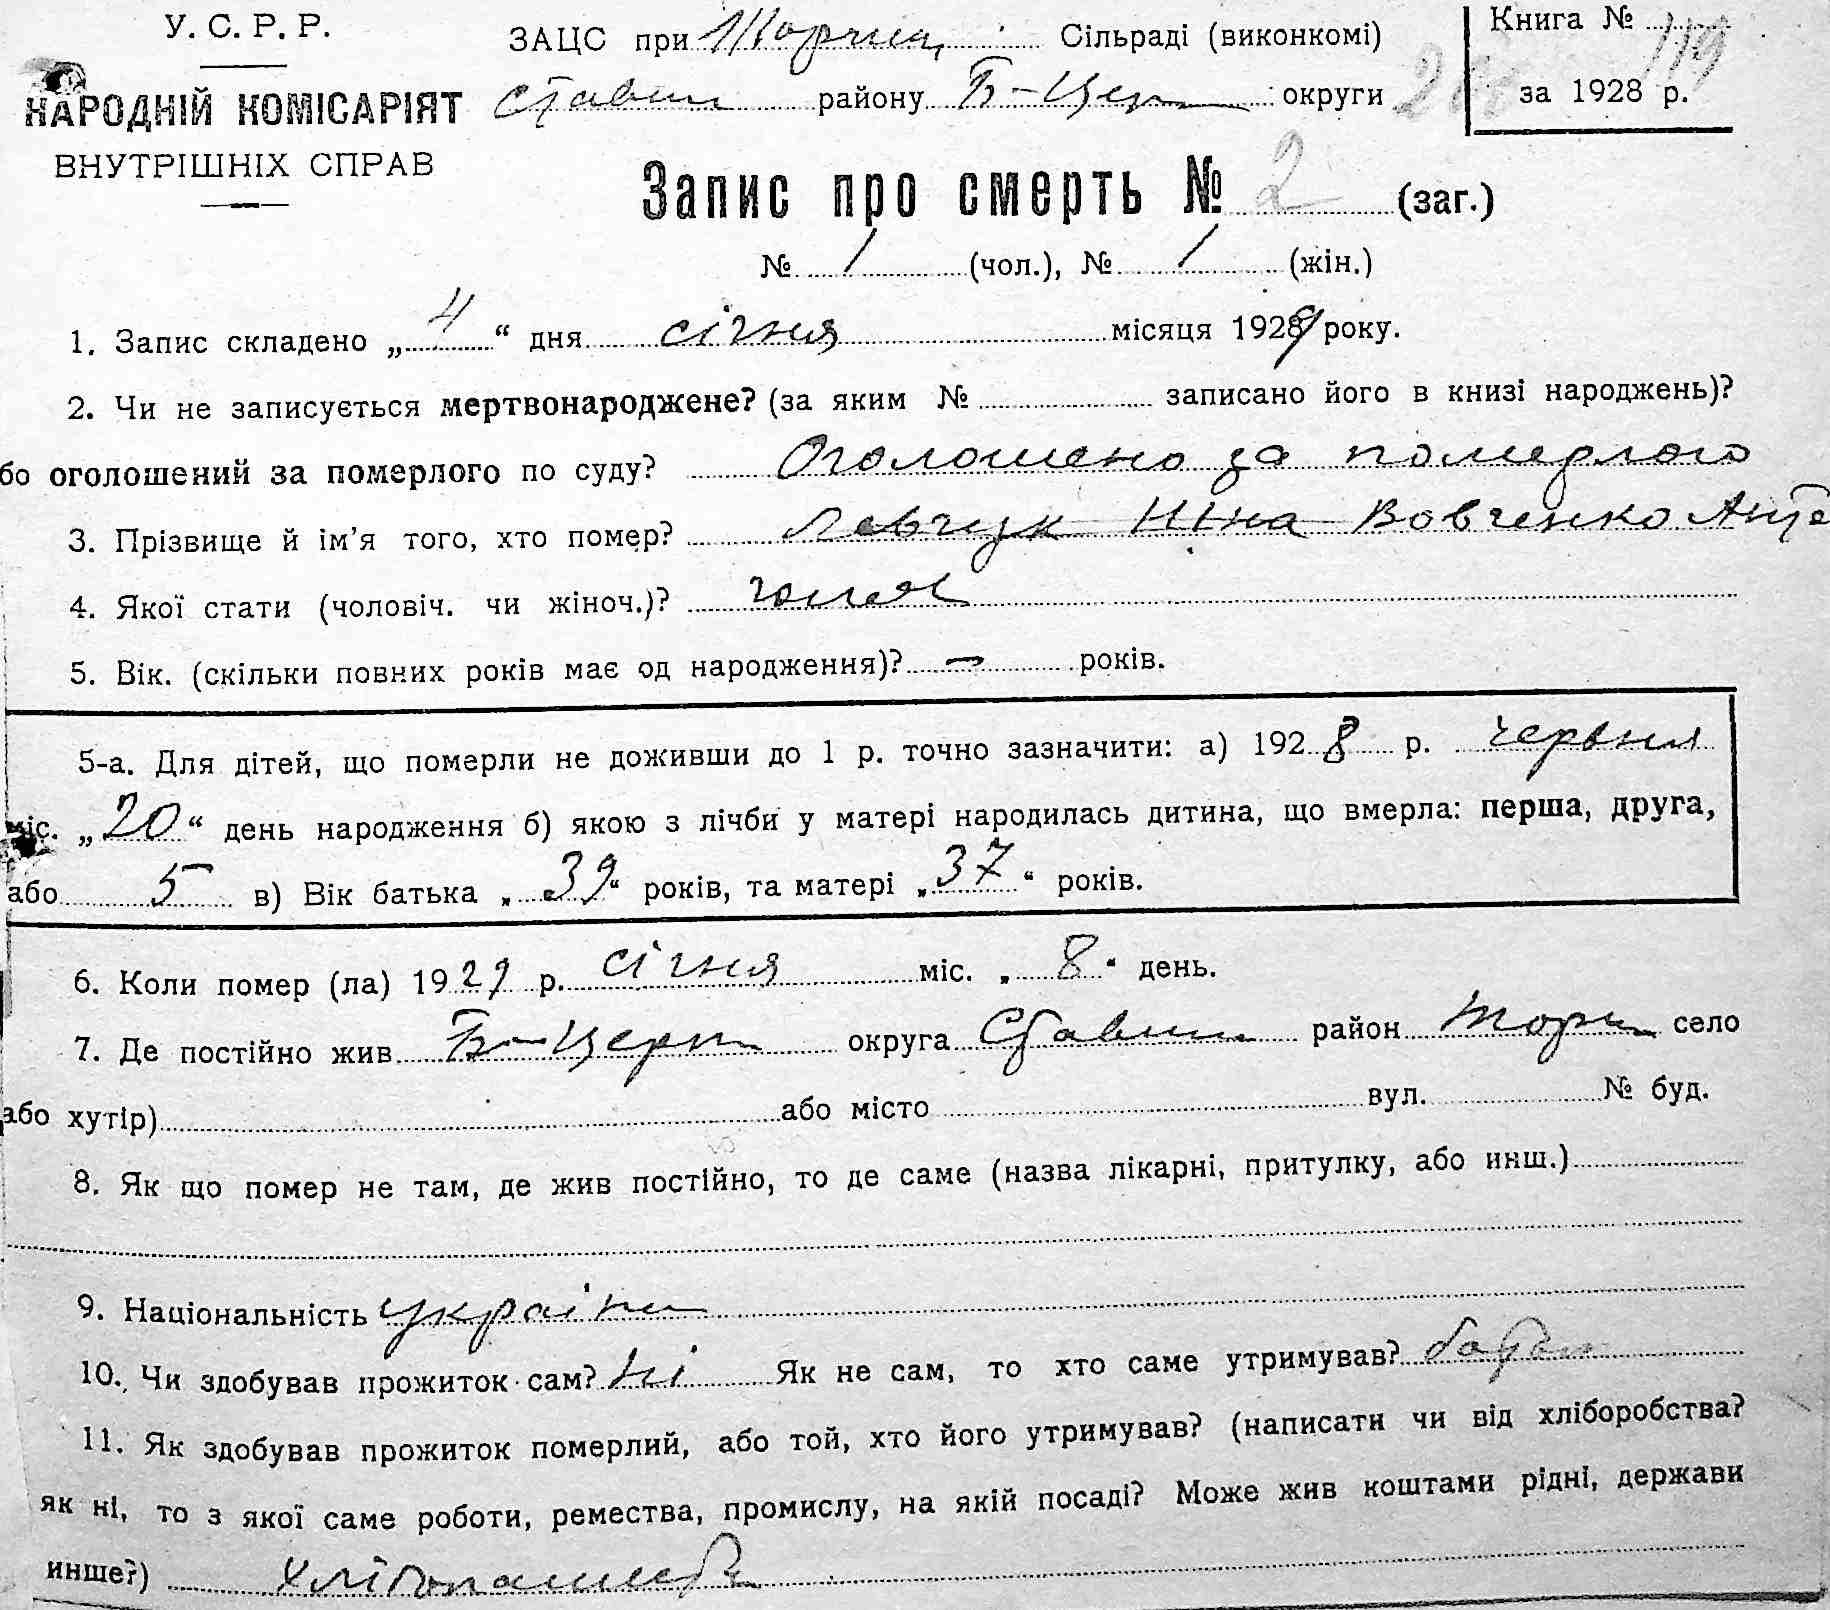 У. С. Р. Р.
НАРОДНІЙ КОМІСАРІЯТ
ВНУТРІШНІХ СПРАВ
ЗАЦС при Сільраді (виконкомі)
Ставищ району Б-Церк округи
Книга № 119
за 1928 р.
Запис про смерть № 2 (заг.)
№ 1 (чол.), № 1 (жін.)
1. Запис складено „ 4 “ дня січня місяця 1929 року.
2. Чи не записується мертвонароджене? (за яким № записано його в книзі народжень)?
бо оголошений за померлого по суду? Оголошено за померлого
3. Прізвище й ім’я того, хто помер? Левчук Ніна Вовченко
4. Якої стати (чоловіч. чи жіноч.)?
5. Вік. (скільки повних років має од народження)? – років.
5-а. Для дітей, що померли не доживши до 1 р. точно зазначити: а) 1928 р. червня
міс. „ 20 “ день народження б) якою з лічби у матері народилась дитина, що вмерла: перша, друга,
або 5 в) Вік батька „ 39 “ років, та матері „ 37 “ років.
6. Коли помер (ла) 1929 р. січня міс. „ 8 “ день.
7. Де постійно жив Б-Церк округа Ставищ район село
або хутір) або місто вул. № буд.
8. Як що помер не там, де жив постійно, то де саме (назва лікарні, притулку, або инш.)
9. Національність україн
10. Чи здобував прожиток сам? Ні Як не сам, то хто саме утримував?
11. Як здобував прожиток померлий, або той, хто його утримував? (написати чи від хліборобства?
як ні, то з якої саме роботи, ремества, промислу, на якій посаді? Може жив коштами рідні, держави
инше?)